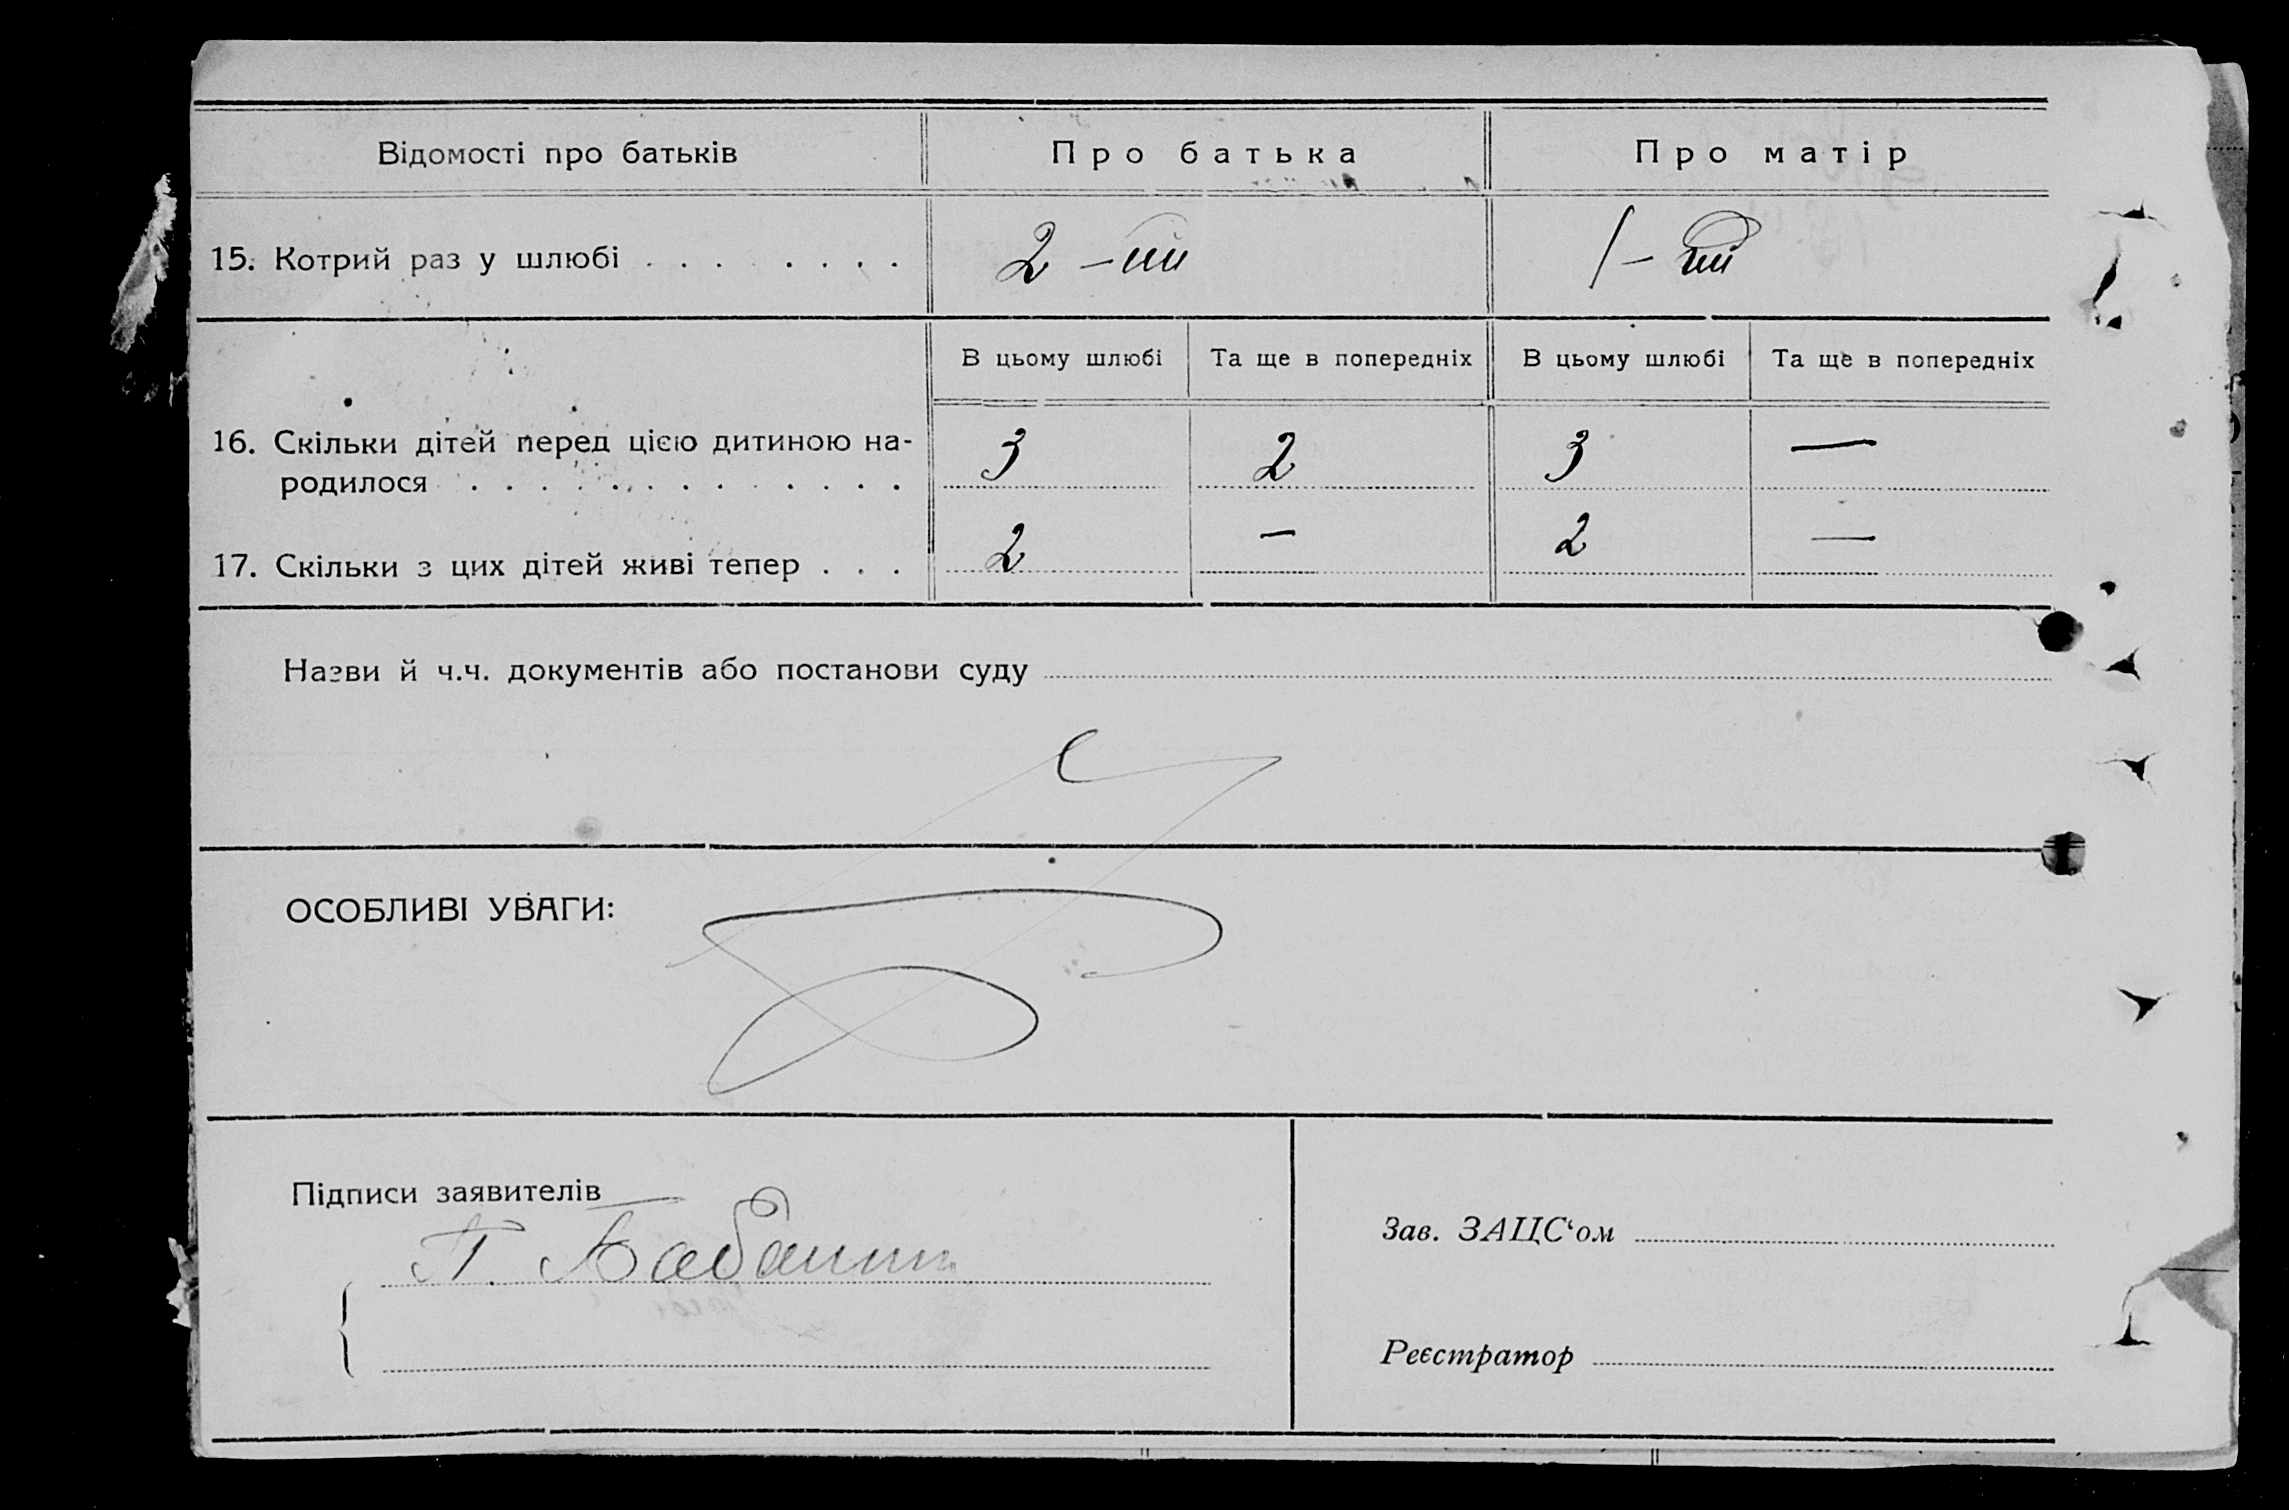 Відомості про батьків Про батька Про матір
15. Котрий раз у шлюбі . . . . . . . . 2 – ий 1 – ий
В цьому шлюбі Та ще в попередніх В цьому шлюбі Та ще в попередніх
16. Скільки дітей перед цією дитиною на-
родилося . . . . . . . . . . . . . 3 2 3 —
17. Скільки з цих дітей живі тепер . . . 2 — 2 —
Назви й ч.ч. документів або постанови суду
ОСОБЛИВІ УВАГИ:
Підписи заявителів
П.
Зав. ЗАЦС‘ом
Реєстратор